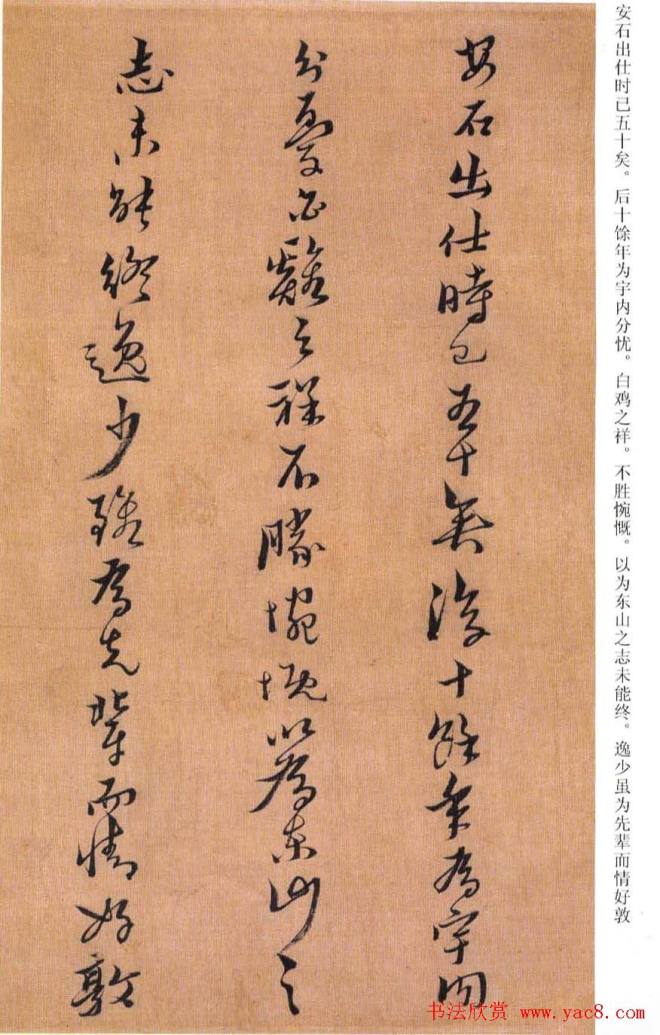 安石出仕时已五十矣。后十馀年为宇内分忧。白鸡之祥。不胜惋慨。以为东山之志未能终。逸少虽为先辈而情好敦
安石出仕時已五十矣後十餘年為宇内
分憂白雞之祥不勝惋慨以為東山之
志未能終逸少雖為先輩而情好敦
书法欣赏 www.yac8.com